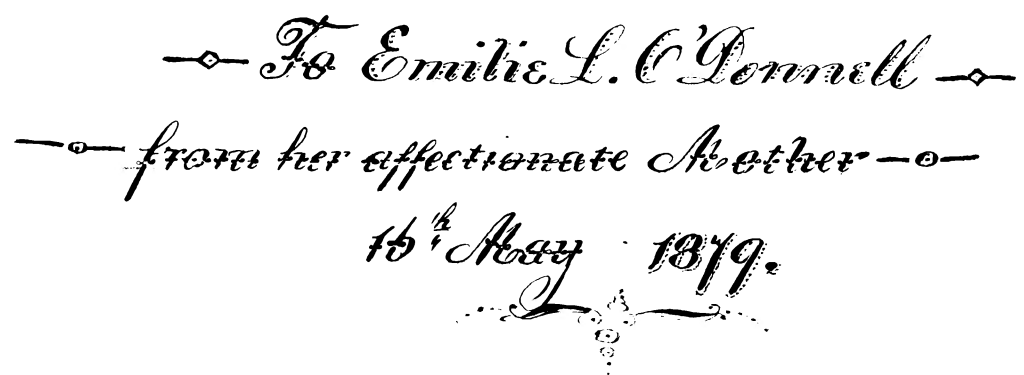 To Emilie L. O'Donnell
from her affectionate Mother
15th May 1879.